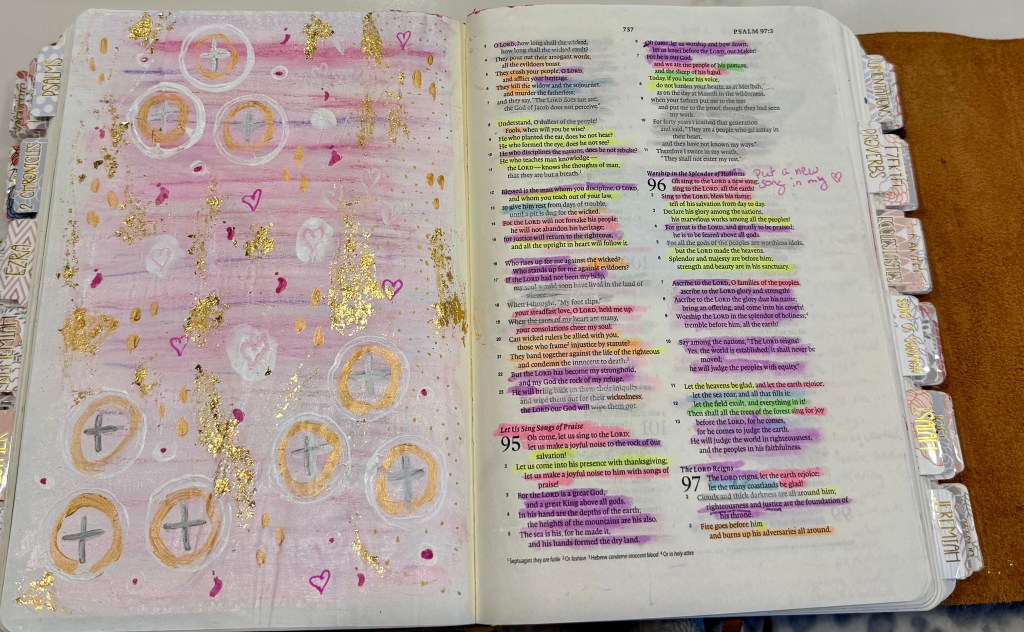 PSALMS
2 CHRONICLES
EZRA
737
PSALM 97:3
3 O LORD, how long shall the wicked,
how long shall the wicked exult?
4 They pour out their arrogant words;
all the evildoers boast.
5 They crush your people, O LORD,
and afflict your heritage.
6 They kill the widow and the sojourner,
and murder the fatherless;
7 and they say, "The LORD does not see;
the God of Jacob does not perceive."
8 Understand, O dullest of the people!
Fools, when will you be wise?
9 He who planted the ear, does he not hear?
He who formed the eye, does he not see?
10 He who disciplines the nations, does he not rebuke?
He who teaches man knowledge—
11 the LORD—knows the thoughts of man,
that they are but a breath.¹
12 Blessed is the man whom you discipline, O LORD,
and whom you teach out of your law,
13 to give him rest from days of trouble,
until a pit is dug for the wicked.
14 For the LORD will not forsake his people;
he will not abandon his heritage;
15 for justice will return to the righteous,
and all the upright in heart will follow it.
16 Who rises up for me against the wicked?
Who stands up for me against evildoers?
17 If the LORD had not been my help,
my soul would soon have lived in the land of
silence.
18 When I thought, "My foot slips,"
your steadfast love, O LORD, held me up.
19 When the cares of my heart are many,
your consolations cheer my soul.
20 Can wicked rulers be allied with you,
those who frame² injustice by statute?
21 They band together against the life of the righteous
and condemn the innocent to death.³
22 But the LORD has become my stronghold,
and my God the rock of my refuge.
23 He will bring back on them their iniquity
and wipe them out for their wickedness;
the LORD our God will wipe them out.
Let Us Sing Songs of Praise
95 Oh come, let us sing to the LORD;
let us make a joyful noise to the rock of our
salvation!
2 Let us come into his presence with thanksgiving;
let us make a joyful noise to him with songs of
praise!
3 For the LORD is a great God,
and a great King above all gods.
4 In his hand are the depths of the earth;
the heights of the mountains are his also.
5 The sea is his, for he made it,
and his hands formed the dry land.
6 Oh come, let us worship and bow down;
let us kneel before the LORD, our Maker!
7 For he is our God,
and we are the people of his pasture,
and the sheep of his hand.
Today, if you hear his voice,
8 do not harden your hearts, as at Meribah,
as on the day at Massah in the wilderness,
9 when your fathers put me to the test
and put me to the proof, though they had seen
my work.
10 For forty years I loathed that generation
and said, "They are a people who go astray in
their heart,
and they have not known my ways."
11 Therefore I swore in my wrath,
"They shall not enter my rest."
Worship in the Splendor of Holiness
put a new
song in my ♡
96 Oh sing to the LORD a new song;
sing to the LORD, all the earth!
2 Sing to the LORD, bless his name;
tell of his salvation from day to day.
3 Declare his glory among the nations,
his marvelous works among all the peoples!
4 For great is the LORD, and greatly to be praised;
he is to be feared above all gods.
5 For all the gods of the peoples are worthless idols,
but the LORD made the heavens.
6 Splendor and majesty are before him;
strength and beauty are in his sanctuary.
7 Ascribe to the LORD, O families of the peoples,
ascribe to the LORD glory and strength!
8 Ascribe to the LORD the glory due his name;
bring an offering, and come into his courts!
9 Worship the LORD in the splendor of holiness;⁴
tremble before him, all the earth!
10 Say among the nations, "The LORD reigns!
Yes, the world is established; it shall never be
moved;
he will judge the peoples with equity."
11 Let the heavens be glad, and let the earth rejoice;
let the sea roar, and all that fills it;
12 let the field exult, and everything in it!
Then shall all the trees of the forest sing for joy
13 before the LORD, for he comes,
for he comes to judge the earth.
He will judge the world in righteousness,
and the peoples in his faithfulness.
The LORD Reigns
97 The LORD reigns, let the earth rejoice;
let the many coastlands be glad!
2 Clouds and thick darkness are all around him;
righteousness and justice are the foundation of
his throne.
3 Fire goes before him
and burns up his adversaries all around.
¹ Septuagint they are futile ² Or fashion ³ Hebrew condemn innocent blood ⁴ Or in holy attire
PROVERBS
JEREMIAH